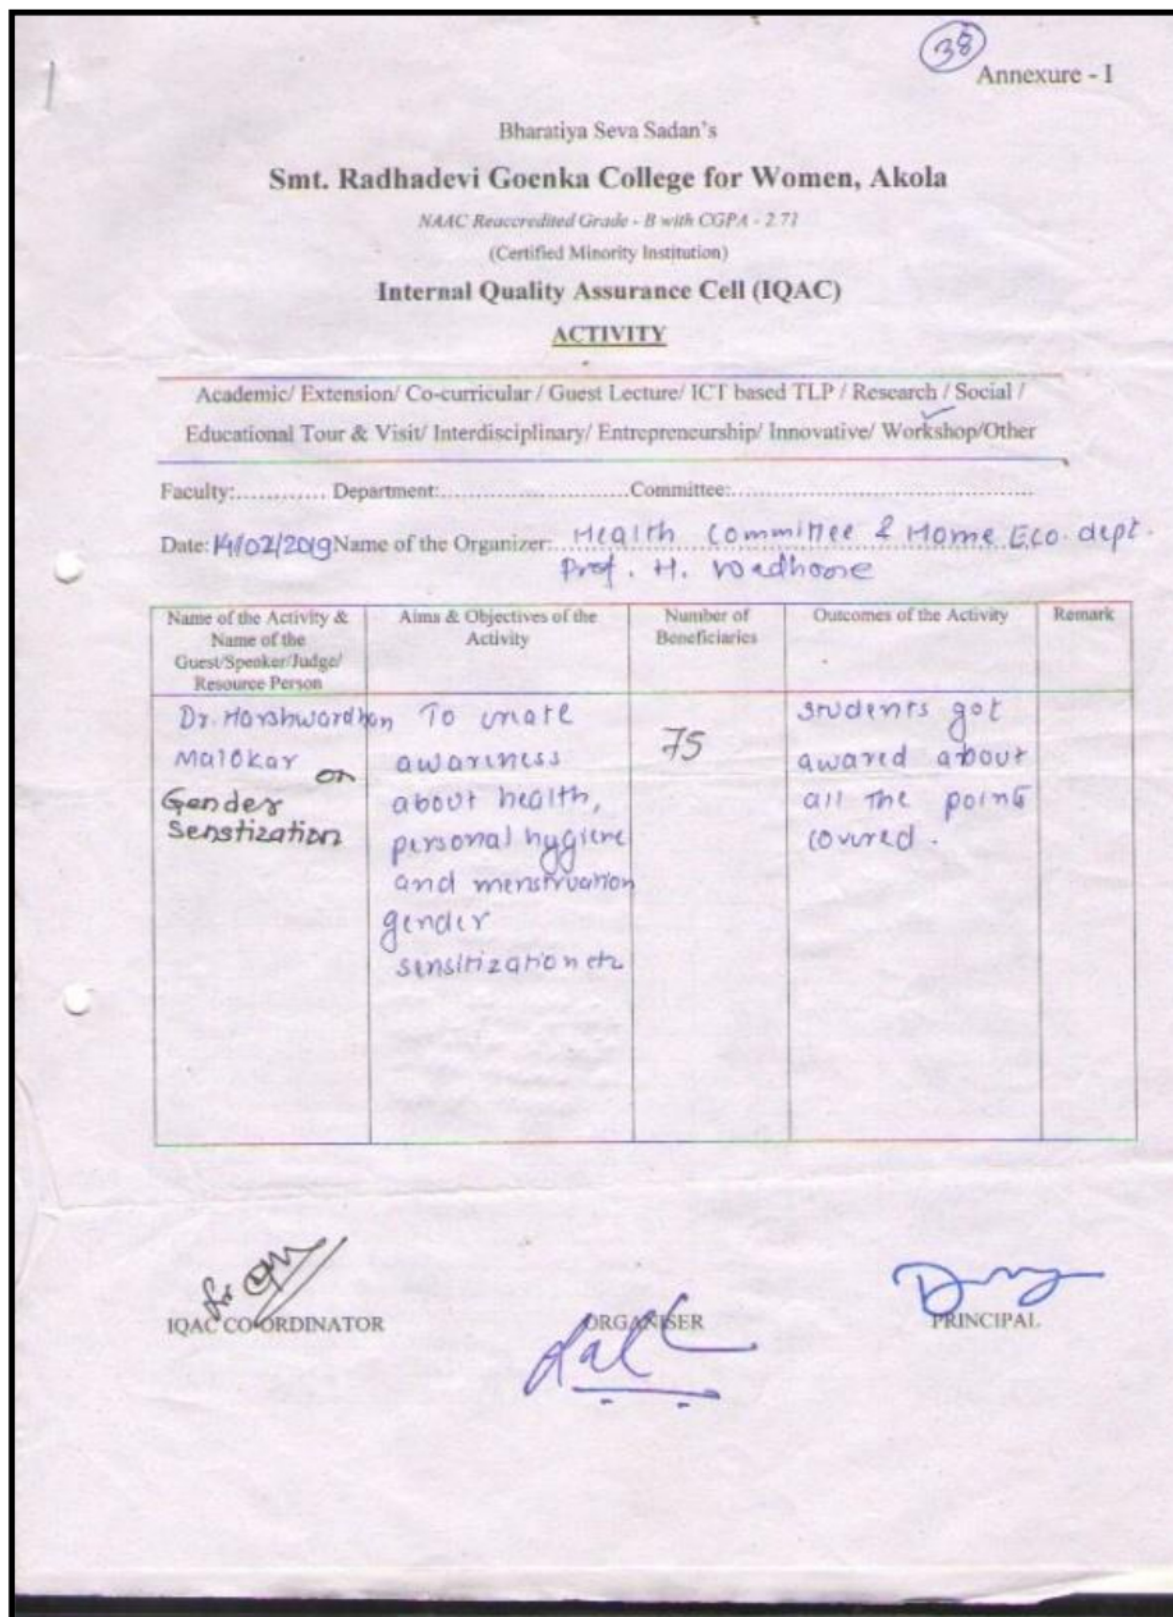 38
Annexure - I
Bharatiya Seva Sadan's
Smt. Radhadevi Goenka College for Women, Akola
NAAC Reaccredited Grade - B with CGPA - 2.71
(Certified Minority Institution)
Internal Quality Assurance Cell (IQAC)
ACTIVITY
Academic/ Extension/ Co-curricular / Guest Lecture/ ICT based TLP / Research / Social /
Educational Tour & Visit/ Interdisciplinary/ Entrepreneurship/ Innovative/ Workshop/Other
Faculty:............ Department:............................Committee:............................................
Date: 14/02/2019 Name of the Organizer: Health Committee & Home Eco. dept.
Prof. H.
Name of the Activity &
Name of the
Guest/Speaker/Judge/
Resource Person
Aims & Objectives of the
Activity
Number of
Beneficiaries
Outcomes of the Activity
Remark
Dr. Harshwardhan
Malokar on
Gender
Senstization
To create
awareness
about health,
personal hygiene
and menstruation
gender
sensitization etc
75
students got
awared about
all the points
covered.
IQAC CO-ORDINATOR
ORGANISER
PRINCIPAL